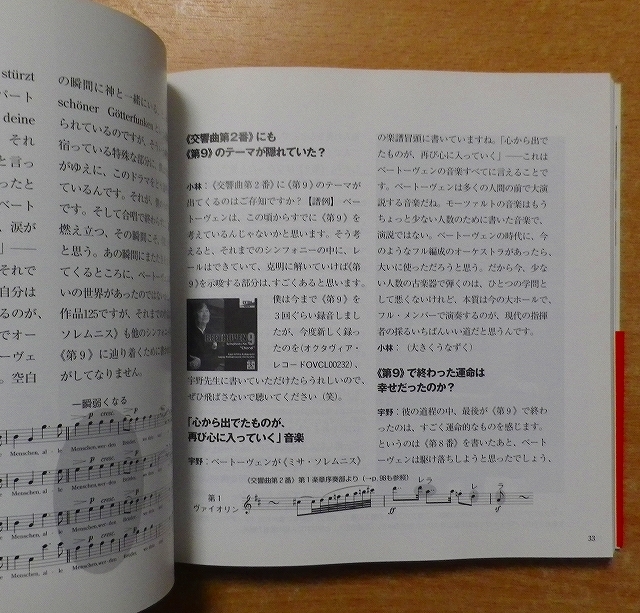 stürzt
パート
deine
それ
と言っ
ったと
ベート
涙が
」
それで
自分は
るのが、
でオー
ーヴェ
。空白
の瞬間に神と一緒にいる
schöner Götterfunken
られているのですが、そう
宿っている特殊な部分に、
がゆえに、このドラマを
ているんです。それが、
です。そして合唱で終わ
燃え立つ、その瞬間こそ
と思う。あの瞬間にまだ
てくるところに、ベート
いの世界があったのでは
作品125ですが、それまでの
ソレムニス》も他のシンフォ
《第9》に辿り着くために書か
がしてなりません。
一瞬弱くなる
p cresc.
Menschen, al - le Menschen, wer - den Brüder,
p cresc.
Menschen, al - le Menschen, wer - den Brüder,
p cresc.
Menschen, al - le Menschen, wer - den Brüder,
p cresc.
Menschen, al - le Menschen, wer - den Brüder,
《交響曲第2番》にも
《第9》のテーマが隠れていた?
小林:《交響曲第2番》に《第9》のテーマが
出てくるのはご存知ですか?【譜例】ベー
トーヴェンは、この頃からすでに《第9》を
考えているんじゃないかと思います。そう考
えると、それまでのシンフォニーの中に、レ
ールはできていて、克明に解いていけば《第
9》を示唆する部分は、すごくあると思います。
BEETHOVEN 9
僕は今まで《第9》を
3回ぐらい録音しまし
たが、今度新しく録っ
たのを(オクタヴィア・
レコードOVCL00232)、
宇野先生に書いていただけたらうれしいので、
ぜひ飛ばさないで聴いてください(笑)。
「心から出でたものが、
再び心に入っていく」音楽
宇野:ベートーヴェンが《ミサ・ソレムニス》
の楽譜冒頭に書いていますね。「心から出で
たものが、再び心に入っていく」――これは
ベートーヴェンの音楽すべてに言えることで
す。ベートーヴェンは多くの人間の前で大演
説する音楽だね。モーツァルトの音楽はもう
ちょっと少ない人数のために書いた音楽で、
演説ではない。ベートーヴェンの時代に、今
のようなフル編成のオーケストラがあったら、
大いに使っただろうと思う。だから今、少な
い人数の古楽器で弾くのは、ひとつの学問と
して悪くないけれど、本質は今の大ホールで、
フル・メンバーで演奏するのが、現代の指揮
者の採るいちばんいい道だと思うんです。
小林:(大きくうなずく)
《第9》で終わった運命は
幸せだったのか?
宇野:彼の道程の中、最後が《第9》で終わ
ったのは、すごく運命的なものを感じます。
というのは《第8番》を書いたあと、ベート
ーヴェンは駆け落ちしようと思ったでしょう、
《交響曲第2番》第1楽章序奏部より(→p.98も参照)
第1
ヴァイオリン
レラ
レ
ラ
ff
ff
33